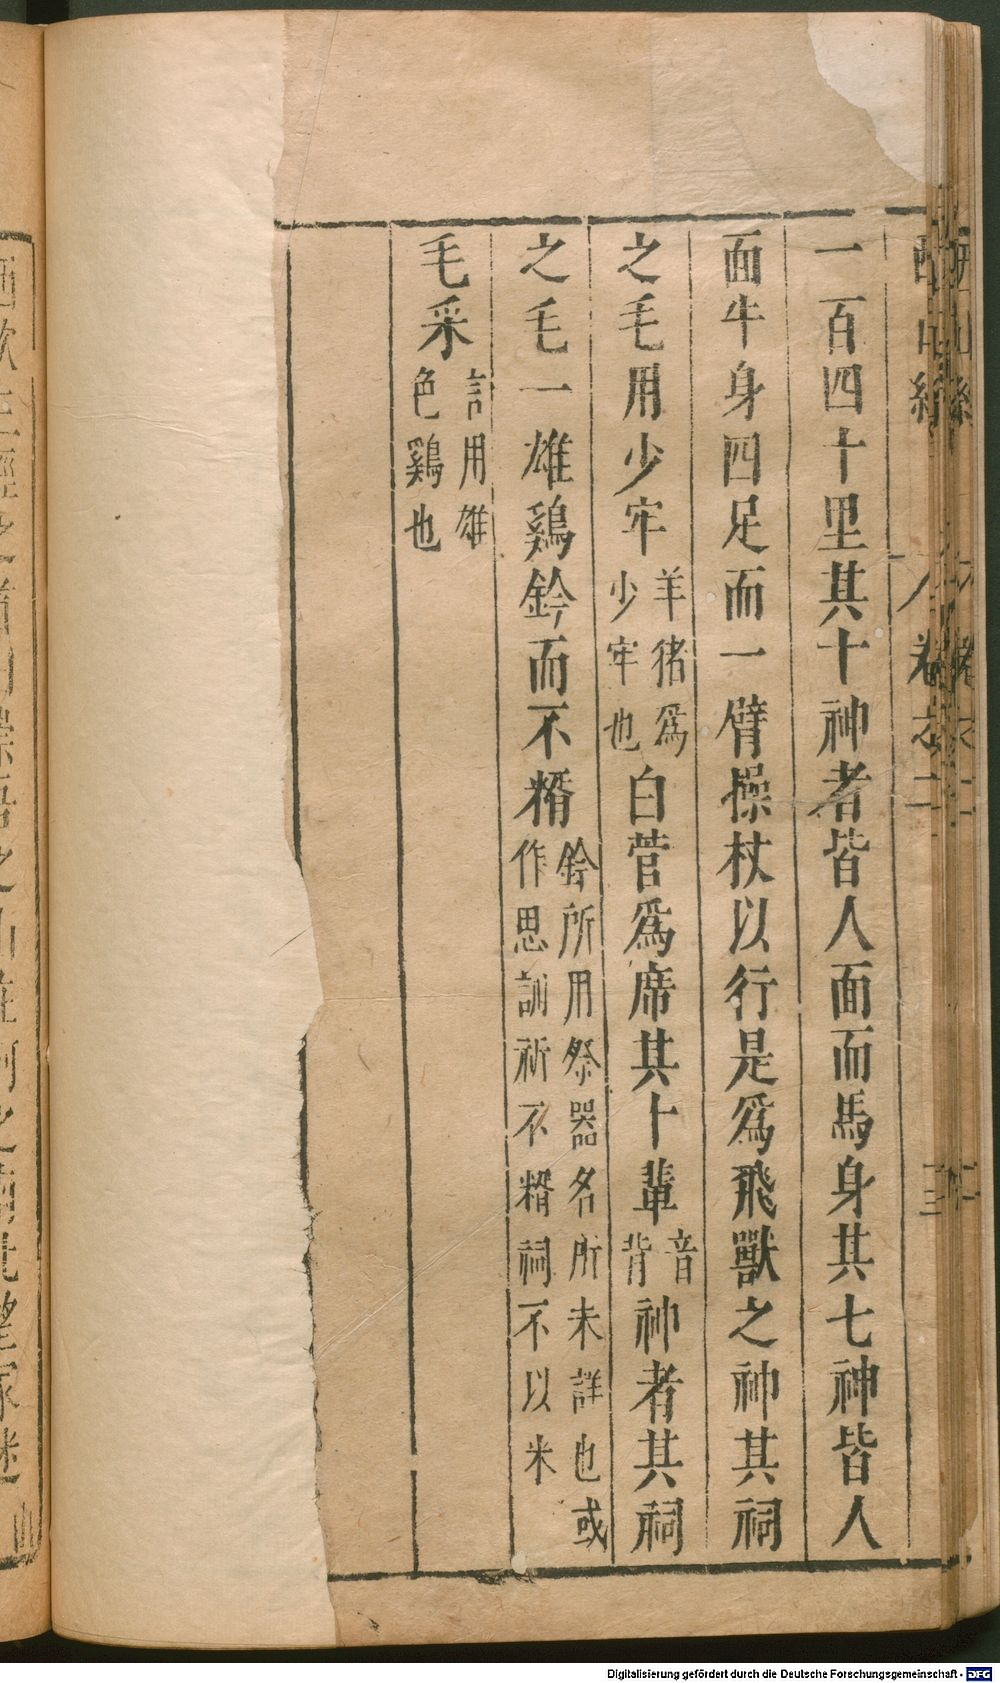 西山經　卷之二　三
一百四十里其十神者皆人面而馬身其七神皆人
面牛身四足而一臂操杖以行是爲飛獸之神其祠
之毛用少牢羊猪爲少牢也白菅爲席其十輩音背神者其祠
之毛一雄鷄鈐而不糈鈐所用祭器名所未詳也或作思訓祈不糈祠不以米
毛采言用雄色鷄也
Digitalisierung gefördert durch die Deutsche Forschungsgemeinschaft - DFG